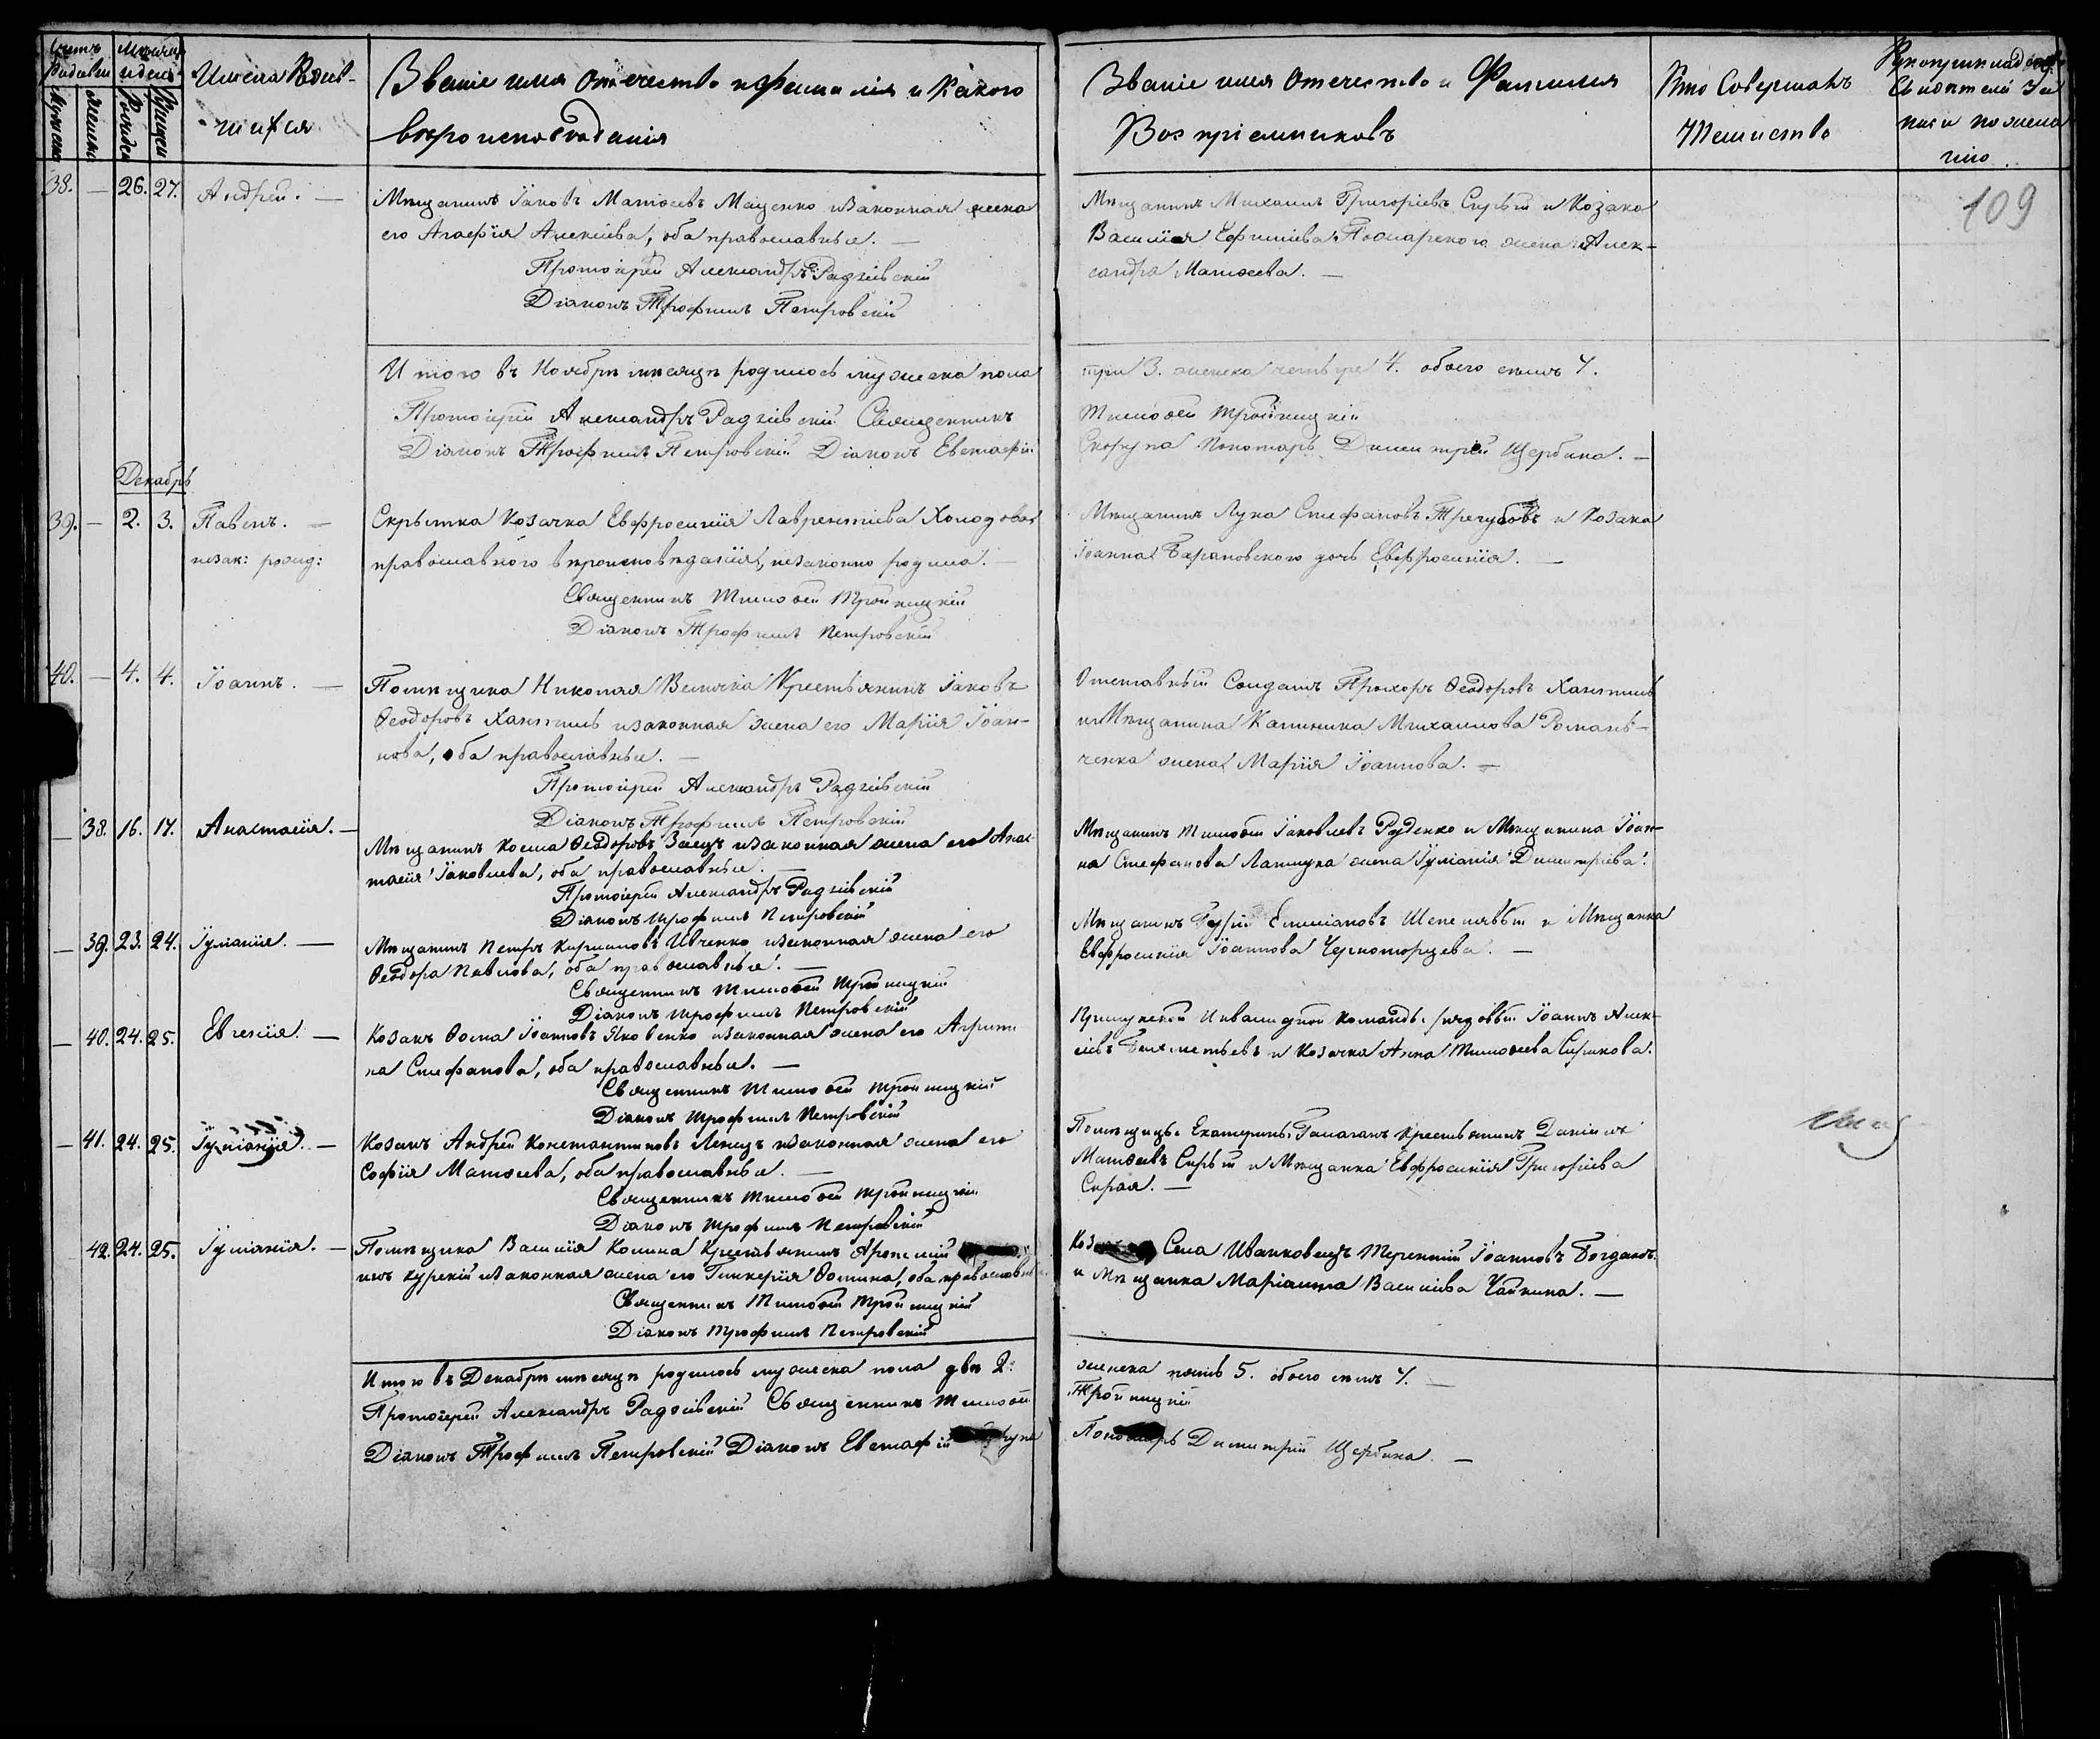 Счетъ Родивш
Мужеска
Женска
Мѣсяцъ и день
Рожден
Крещен
Имена Родив-
шихся
Званіе имя отечество и фамилія и какого
вѣроисповѣданія
Званіе имя отечество и Фамилія
Воспріемниковъ
Кто Совершалъ
Таинство
Рукоприкладство
Свидѣтелей
писи по жела
нію
109
38. — 26. 27. Андрей. —
Мѣщанинъ Іаковъ Матѳеевъ Маценко изаконная жена
его Агафія Алексіева, оба православные. —
Протоіерей Александръ Радзіевскій
Діаконъ Трофимъ Петровскій
Мѣщанинъ Михаилъ Григоріевъ Сирый и Козака
Василія Ефиміева Пожарского жена Алек-
сандра Матѳеева. —
Итого въ Ноябрѣ мѣсяцѣ родилось мужеска пола
три 3. женска четыре 4. обоего семъ 7.
Протоіерей Александръ Радзіевскій Священникъ
Тимоѳей Тройницкій
Діаконъ Трофимъ Петровскій Діаконъ Евстафій
Скорупа Пономарь Димитрій Щербина. —
Декабрь
39. — 2. 3. Павелъ. —
незак: рожд:
Скрытка Козачка Евфросинія Лаврентіева Холодова
православного вѣроисповѣданія, незаконно родила. —
Священникъ Тимоѳей Тройницкій
Діаконъ Трофимъ Петровскій
Мѣщанинъ Лука Стефановъ Трегубовъ и Козака
Іоанна Барановского дочь Евфросинія. —
40. — 4. 4. Іоаннъ. —
Помѣщика Николая Велички Крестьянинъ Іаковъ
Ѳеодоровъ Хантиль изаконная жена его Марія Іоан-
нова, оба православные. —
Протоіерей Александръ Радзіевскій
Діаконъ Трофимъ Петровскій
Отставный Солдатъ Прохоръ Ѳеодоровъ Хантиль
и Мѣщанина Калиника Михаилова Романь-
ченка жена Марія Іоаннова. —
— 38. 16. 17. Анастасія. —
Мѣщанинъ Косма Ѳеодоровъ Заецъ изаконная жена его Анас
тасія Іаковлева, оба православные. —
Протоіерей Александръ Радзіевскій
Діаконъ Трофимъ Петровскій
Мѣщанинъ Тимоѳей Іаковлевъ Руденко и Мѣщанина Іоан-
на Стефанова Лапшука жена Іуліанія Димитріева.
— 39. 23. 24. Іуліанія. —
Мѣщанинъ Петръ Кириловъ Ивченко изаконная жена его
Ѳеодора Павлова, оба православные. —
Священникъ Тимоѳей Тройницкій
Діаконъ Трофимъ Петровскій
Мѣщанинъ Гурій Емиліановъ Шепелявый и Мѣщанка
Евфросинія Іоаннова Черноморцева. —
— 40. 24. 25. Евгенія. —
Козакъ Ѳома Іоанновъ Яковенко изаконная жена его Агрипи
на Стефанова, оба православные. —
Священникъ Тимоѳей Тройницкій
Діаконъ Трофимъ Петровскій
Прилукской Инвалидной Команды рядовый Іоаннъ Алек-
сіевъ и Козачка Анна Тимоѳеева Сирикова.
— 41. 24. 25. Іуліанія. —
Козакъ Андрей Константиновъ Лекецъ изаконная жена его
Софія Матѳеева, оба православные. —
Священникъ Тимоѳей Тройницкій
Діаконъ Трофимъ Петровскій
Помѣщицы Екатерины Галаганъ крестьянинъ Даніилъ
Матѳеевъ Сирый и Мѣщанка Евфросинія Григоріева
Сирая. —
42. 24. 25. Іуліанія. —
Помѣщика Василія Колика Крестьянинъ Артемій
инъ Курскій изаконная жена его Гликерія Ѳомина, оба православные
Священникъ Тимоѳей Тройницкій
Діаконъ Трофимъ Петровскій
Села Иванковецъ Терентій Іоанновъ Богданъ
и Мѣщанка Маріанна Василіева Чайкина. —
Итого въ Декабрѣ мѣсяцѣ родилось мужеска пола два 2.
женска пять 5. обоего семъ 7. —
Протоіерей Александръ Радзіевскій Священникъ Тимоѳей
Тройницкій
Діаконъ Трофимъ Петровскій Діаконъ Евстафій
Пономарь Димитрій Щербина. —